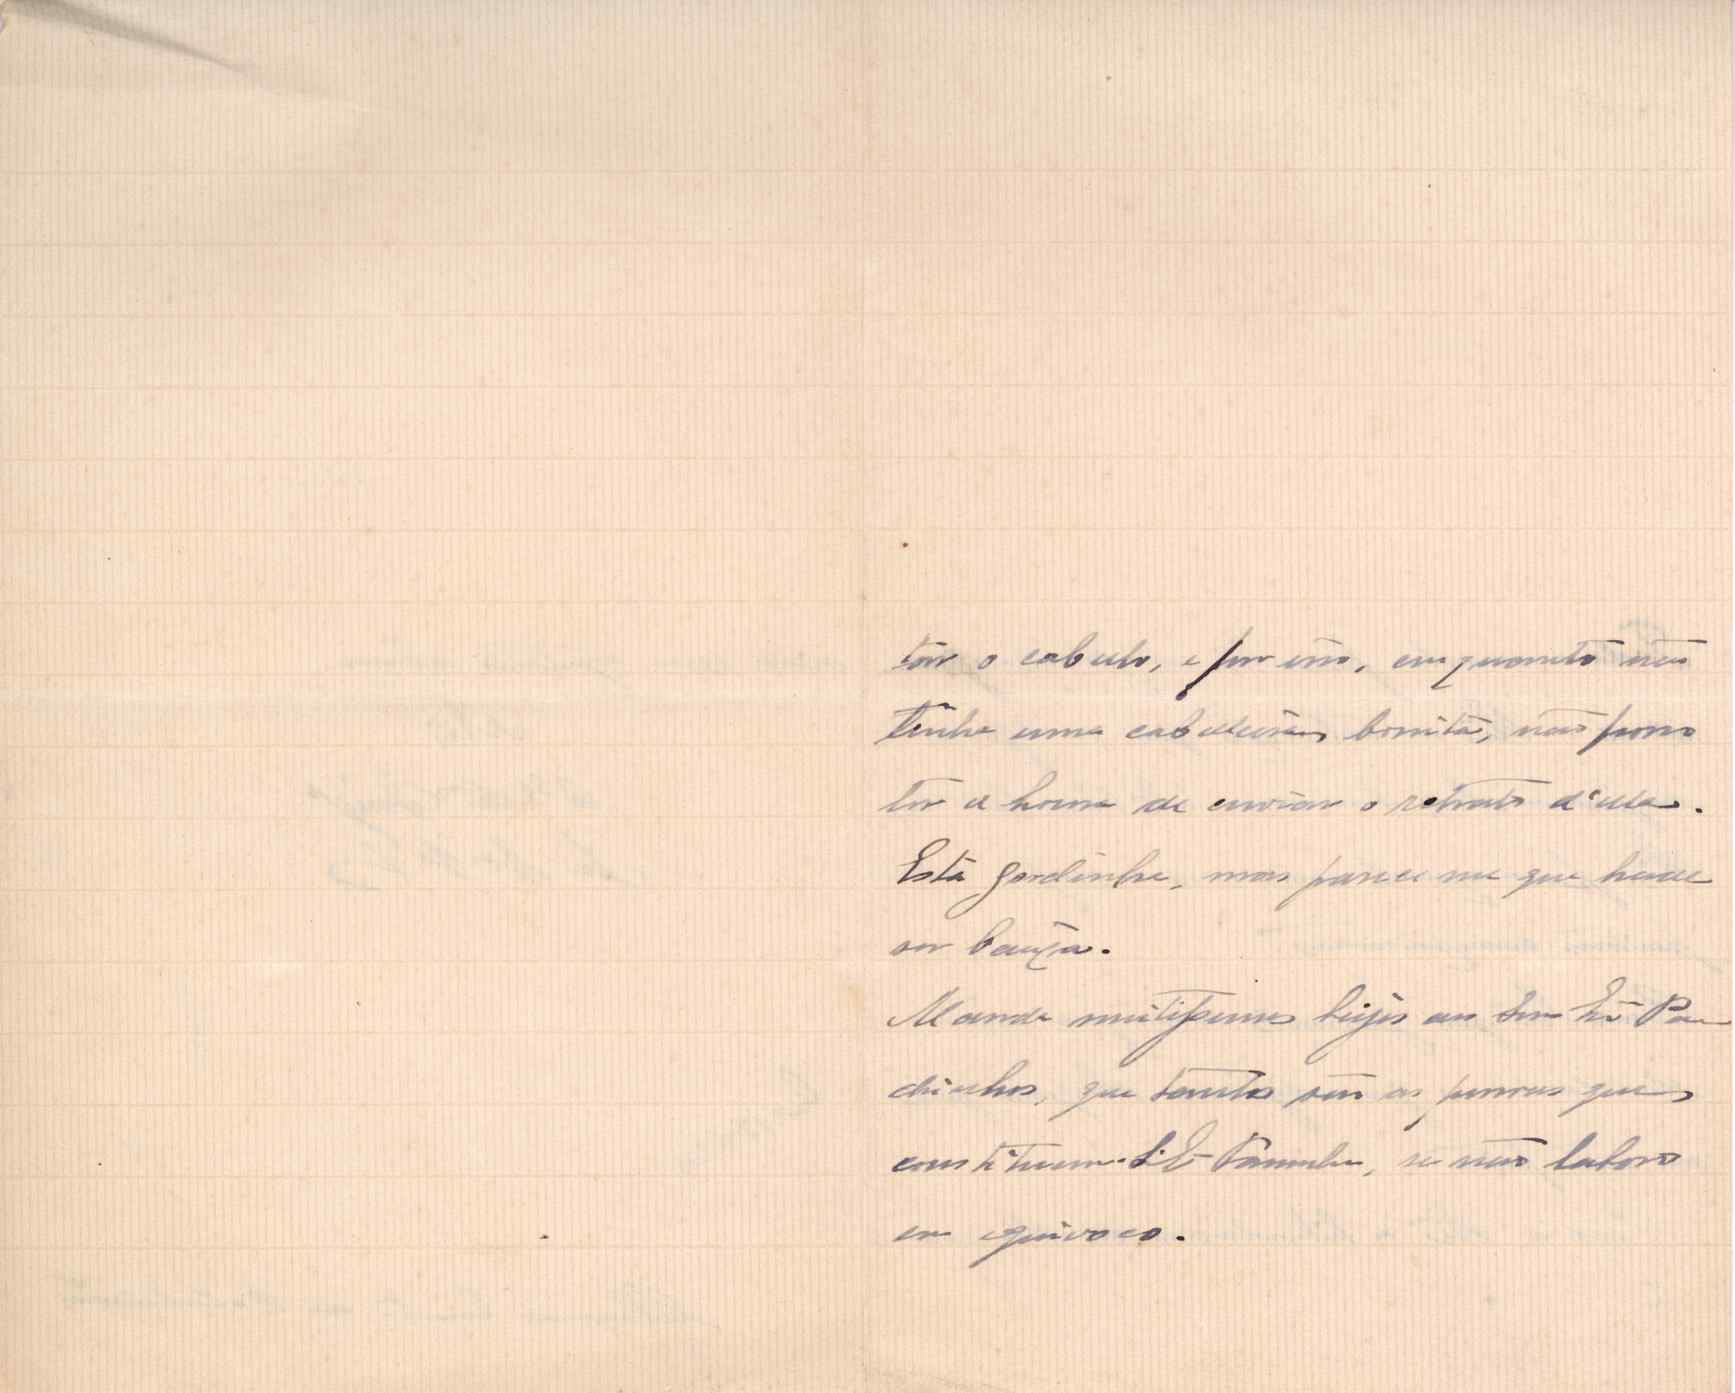 tar o cabelo, e por isso, emquanto não
tenha uma cabeleira bonita, não posso
ter a honra de enviar o retrato d'ella.
Está gordinha, mas parece me que hade
ser baixa.
Manda muitissimos beijos aos seus Pa-
drinhos, que tantos são as pessoas que
constituem a Familia, se não laboro
em equivoco.